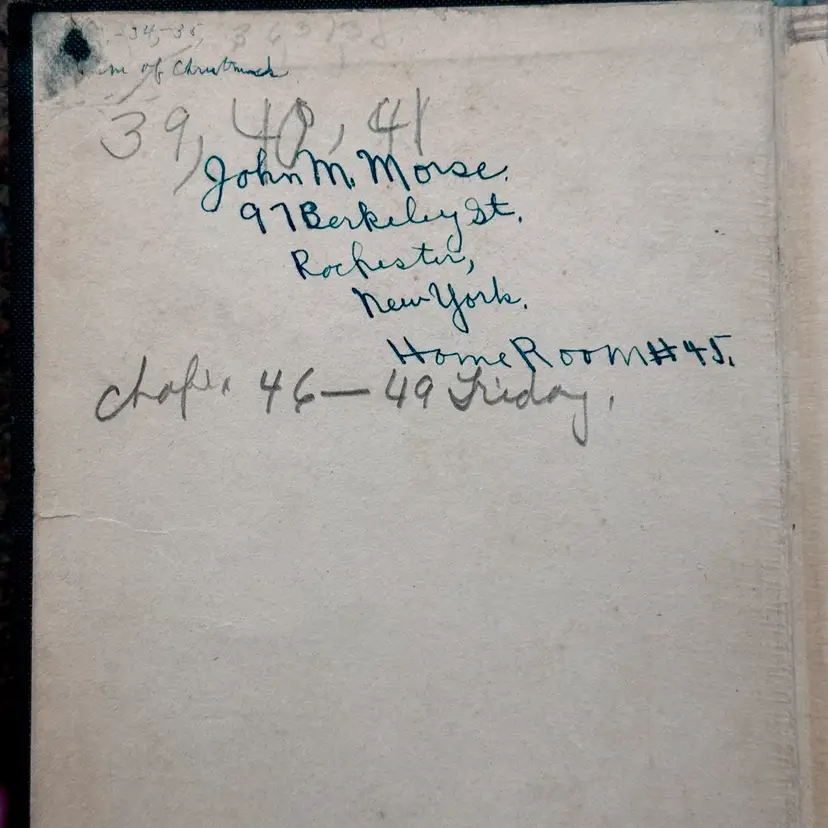 -34,-35, 36
of Christmas
39, 40, 41
John M. Morse.
97 Berkeley St.
Rochester,
New York.
Home Room #45.
Chap. 46—49 Friday.